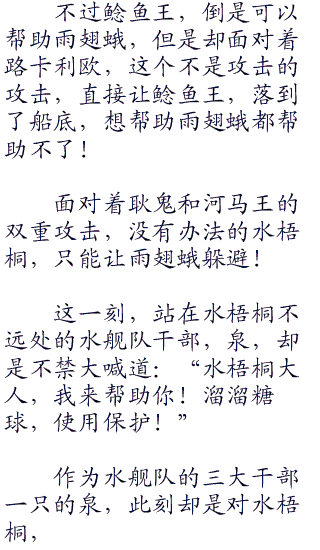 不过鲶鱼王，倒是可以
帮助雨翅蛾，但是却面对着
路卡利欧，这个不是攻击的
攻击，直接让鲶鱼王，落到
了船底，想帮助雨翅蛾都帮
助不了！
面对着耿鬼和河马王的
双重攻击，没有办法的水梧
桐，只能让雨翅蛾躲避！
这一刻，站在水梧桐不
远处的水舰队干部，泉，却
是不禁大喊道：“水梧桐大
人，我来帮助你！溜溜糖
球，使用保护！”
作为水舰队的三大干部
一只的泉，此刻却是对水梧
桐，